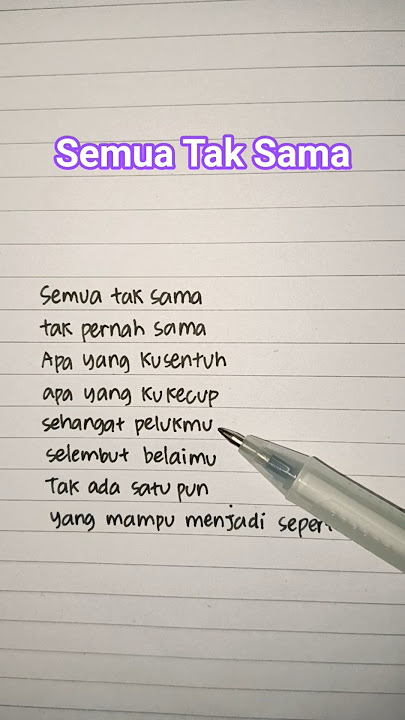 Semua Tak Sama
Semua tak sama
tak pernah sama
Apa yang kusentuh
apa yang kukecup
sehangat pelukmu
selembut belaimu
Tak ada satu pun
yang mampu menjadi